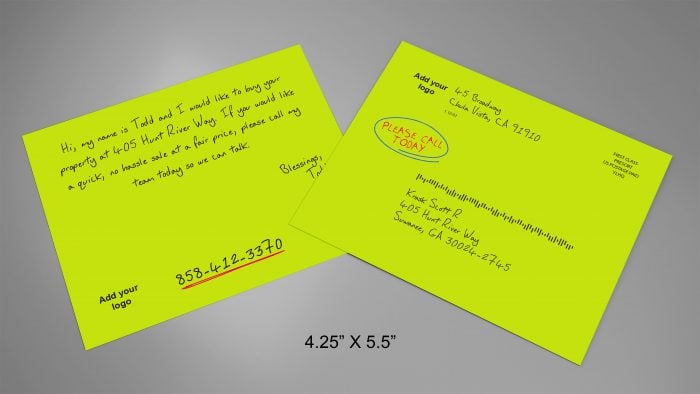 Hi, my name is Todd and I would like to buy your
property at 405 Hunt River Way. If you would like
a quick, no hassle sale at a fair price, please call my
team today so we can talk.
Blessings,
858-412-3370
Add your
logo
Add your
logo
45 Broadway
Chula Vista, CA 91910
PLEASE CALL
TODAY
FIRST CLASS
PRESORT
US POSTAGE PAID
Scott R
405 Hunt River Way
Suwanee, GA 30024-2745
4.25” X 5.5”